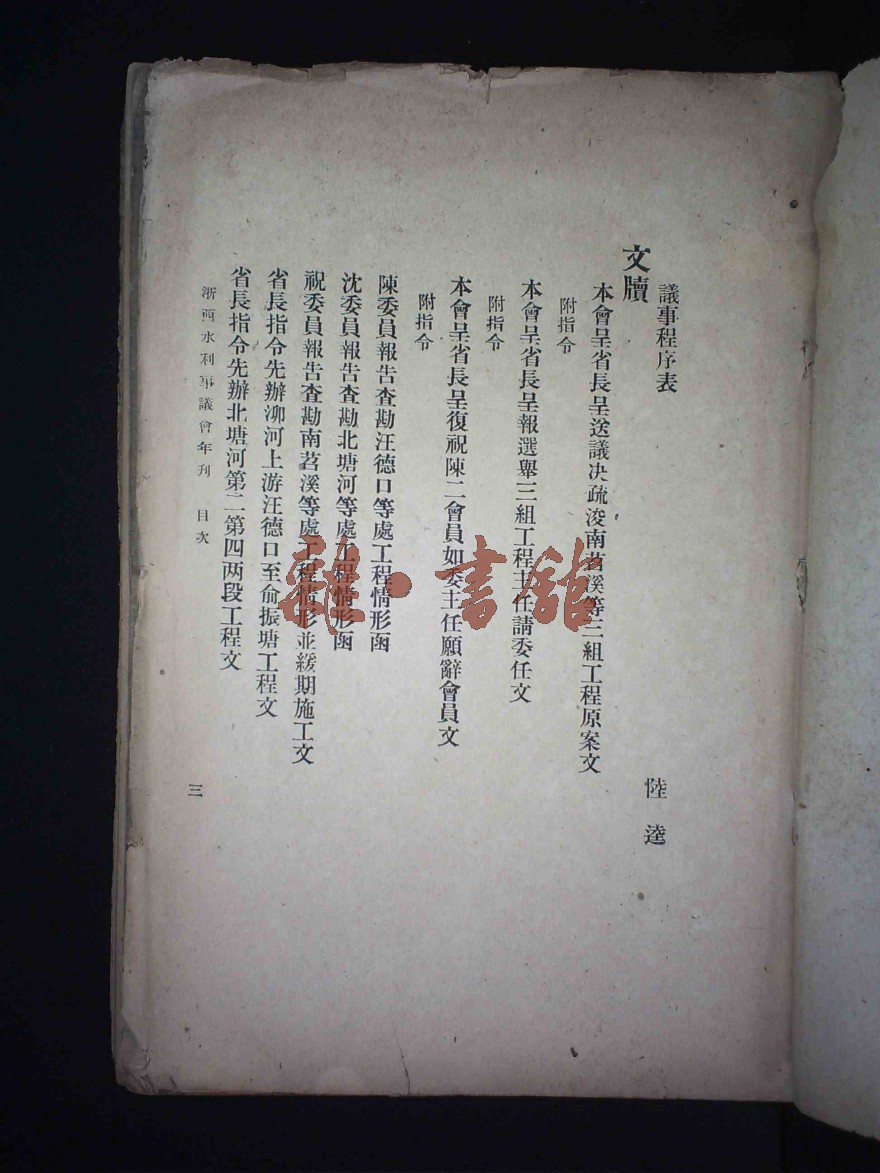 議事程序表
陸逵
文牘
本會呈省長呈送議决疏浚南苕溪等三組工程原案文
附指令
本會呈省長呈報選舉三組工程主任請委任文
附指令
本會呈省長呈復祝陳二會員如委主任願辭會員文
附指令
陳委員報告查勘汪德口等處工程情形函
沈委員報告查勘北塘河等處工程情形函
祝委員報告查勘南苕溪等處工程情形並緩期施工文
省長指令先辦泖河上游汪德口至俞振塘工程文
省長指令先辦北塘河第二第四两段工程文
浙西水利事議會年刊 目次
三
雜·書舘